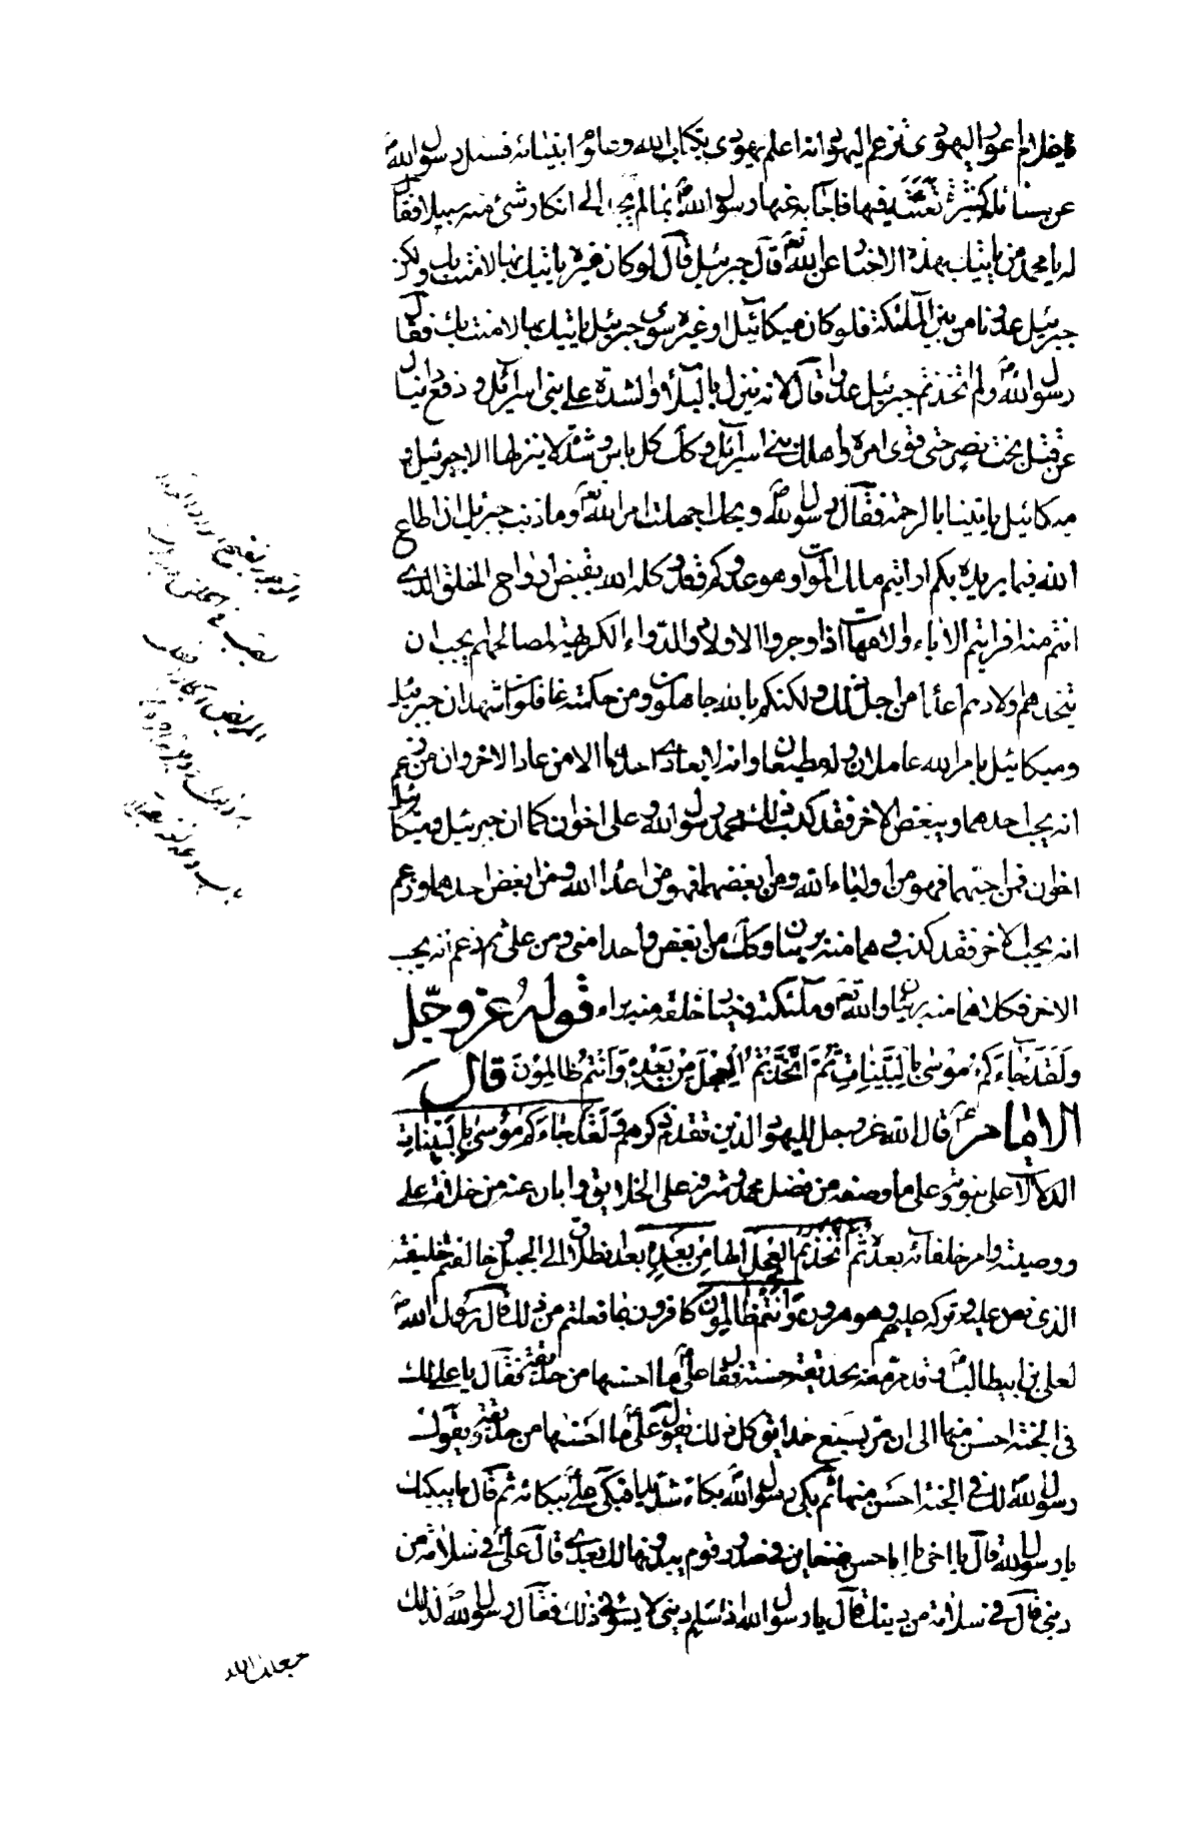 فاحضروا عبد الله اليهودي تزعم اليهود انه اعلم يهودي بكتاب الله وعلوم انبيائه فسئل رسول الله ص
عن مسائل كثيرة تعنته فيها فاجابه عنها رسول الله ص بما لم يجد الى انكار شئ منه سبيلا فقال
له يا محمد من ياتيك بهذه الاخبار عن الله تع قال جبرئيل قال لو كان غيره ياتيك بها لامنت بك ولكن
جبرئيل عدونا من بين الملئكة فلو كان ميكائيل او غيره سوى جبرئيل ياتيك بها لامنت بك فقال
رسول الله ص ولم اتخذتم جبرئيل عدوا قال لانه ينزل بالبلاء والشدة على بني اسرائيل ودفع دانيال
عن قتل بخت نصر حتى قوى امره واهلك بني اسرائيل وكك كل باس وشدة لا ينزلها الا جبرئيل و
ميكائيل ياتينا بالرحمة فقال رسول الله ص ويحك اجهلت امر الله تع وما ذنب جبرئيل ان اطاع
الله فيما يريده بكم ارايتم ملك الموت اهو عدوكم وقد وكله الله بقبض ارواح الخلق الذي
انتم منه افرايتم الاباء والامهات اذا وجروا الاولاد الدواء الكريهة لمصالحهم يجب ان
يتخذهم اولادهم اعداء من اجل ذلك ولكنكم بالله جاهلون ومن حكمته غافلون اشهد ان جبرئيل
وميكائيل بامر الله عاملان وله مطيعان وانه لا يعادى احدهما الا من عاد الاخر وان من زعم
انه يحب احدهما ويبغض الاخر فقد كذب وكذلك محمد رسول الله وعلى اخوان كما ان جبرئيل وميكائيل
اخوان فمن احبهما فهو من اولياء الله ومن ابغضهما فهو من اعداء الله ومن ابغض احدهما وزعم
انه يحب الاخر فقد كذب وهما منه بريئان وكك من ابغض واحدا منى ومن على ثم زعم انه يحب
الاخر فكلانا منه بريئان والله تع وملئكته وخيار خلقه منه براء قوله عز وجل
ولقد جاءكم موسى بالبينات ثم اتخذتم العجل من بعده وانتم ظالمون قال
الامام ع قال الله عز وجل لليهود الذين تقدم ذكرهم ولقد جاءكم موسى بالبينات
الدلالات على نبوته وعلى ما وصفه من فضل محمد وشرفه على الخلايق وابان عنه من خلافة على
ووصيته وامر خلفائه بعده ثم اتخذتم العجل الها من بعده بعد انطلاقه الى الجبل وخالفتم خليفته
الذي نص عليه وتركه عليكم وهو هرون وانتم ظالمون كافرون بما فعلتم من ذلك قال رسول الله ص
لعلى بن ابيطالب ع وقد مر معه بحديقة حسنة فقال على ع ما احسنها من حديقة فقال يا على لك
في الجنة احسن منها الى ان مر بسبع حدايق كل ذلك يقول على ع ما احسنها من حديقة ويقول
رسول الله ص لك في الجنة احسن منها ثم بكى رسول الله ص بكاء شديدا فبكى على ع لبكائه ثم قال ما يبكيك
يا رسول الله قال يا اخى يا ابا حسن ضغاين في صدور قوم يبدونها لك بعدي قال على ع في سلامة من
دينى قال في سلامة من دينك قال يا رسول الله اذا سلم دينى لا يسوئنى ذلك فقال رسول الله ص لذلك
جعلك الله